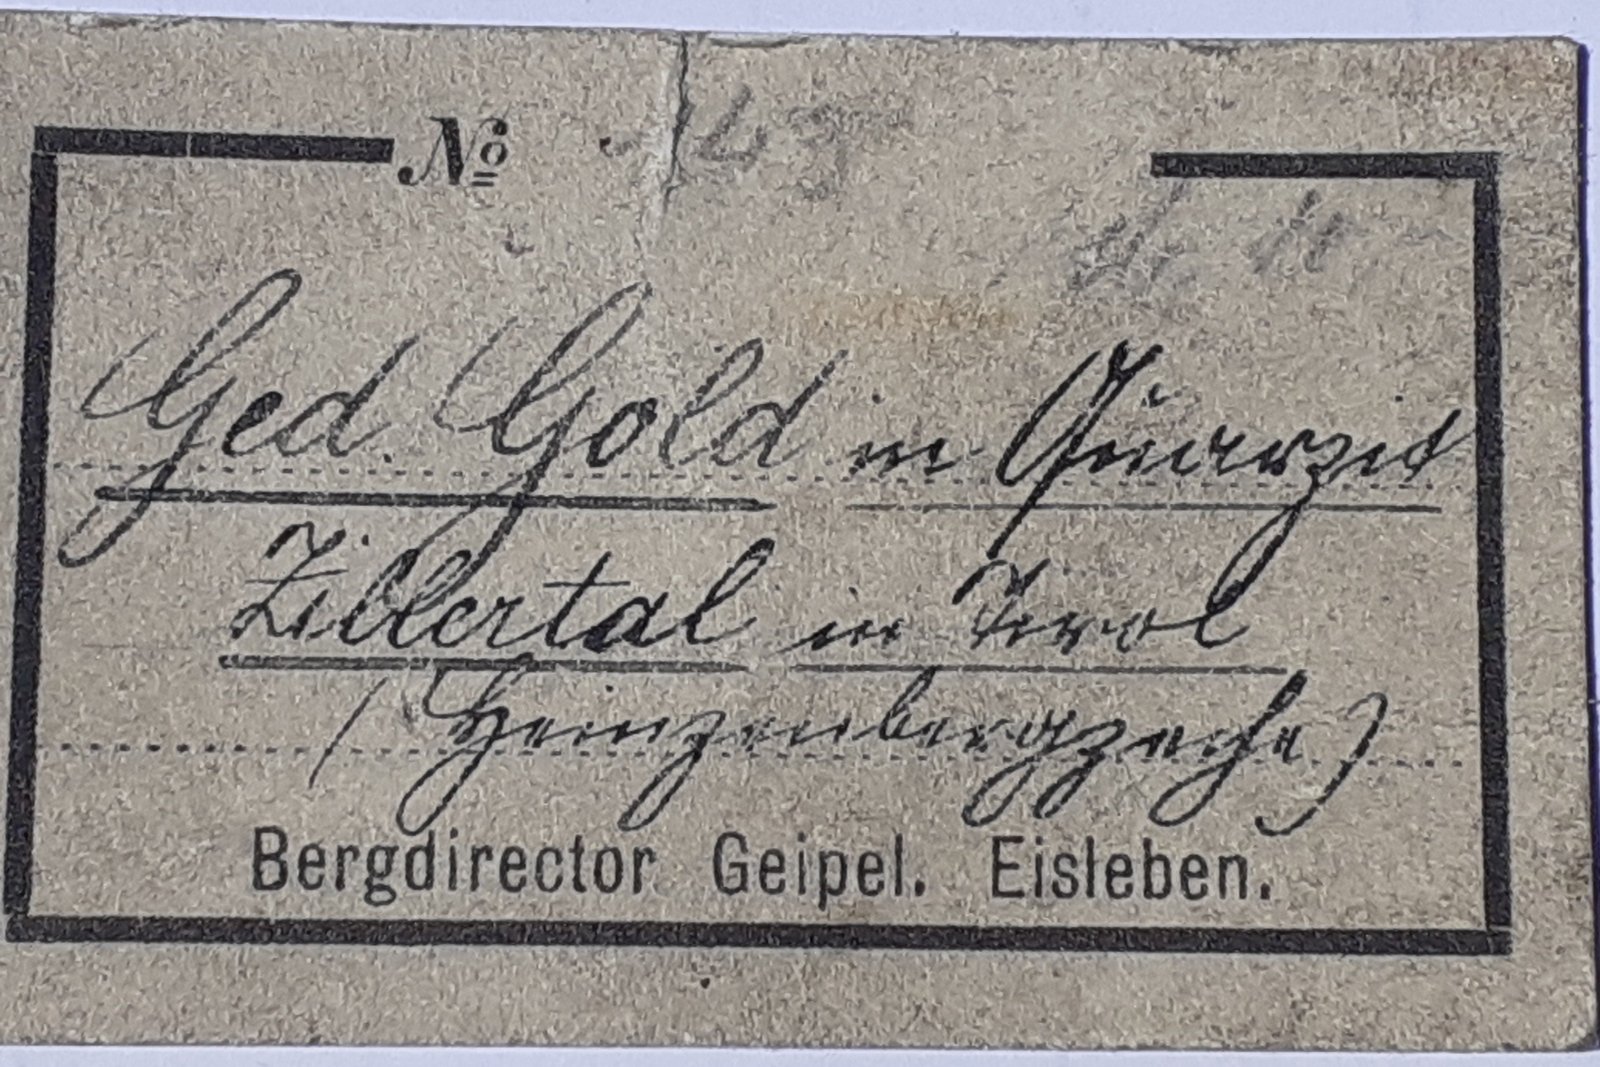 Nº
Ged. Gold in Quarzit
Zillertal in Tirol
(Heinzenbergzeche)
Bergdirector Geipel. Eisleben.